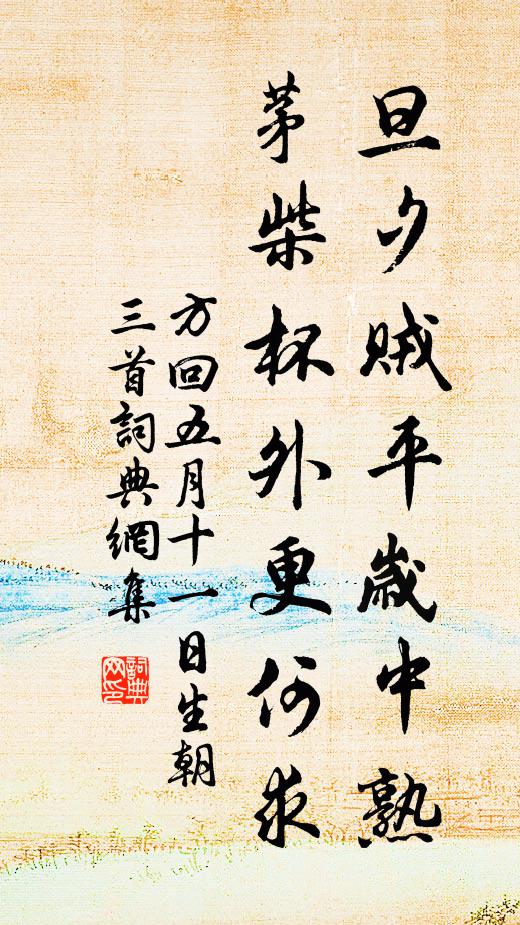 旦夕賊平歲中熟
茅柴杯外更何求
方回五月十一日生朝
三首詞典網集
詞典
网印